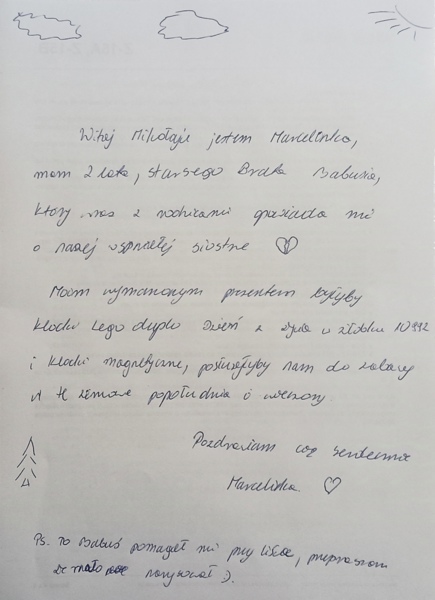 Witaj Mikołaju jestem Marcelinka,
mam 2 lata, starszego Brata Babusia,
który wraz z rodzicami opowiada mi
o naszej wspaniałej siostrze
Moim wymarzonym prezentem byłyby
klocki Lego duplo Dzień z życia w żłobku 10992
i klocki magnetyczne, posłużyłyby nam do zabawy
w te zimowe popołudnia i wieczory.
Pozdrawiam cię serdecznie
Marcelinka.
Ps. To Babuś pomagał mi przy liście, przepraszam
że mało narysował :).